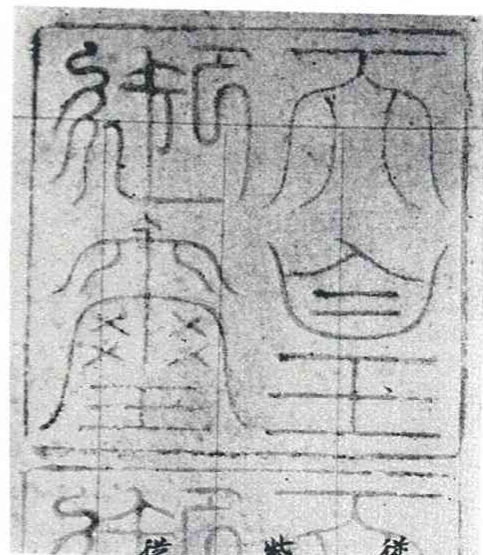 天皇
御璽